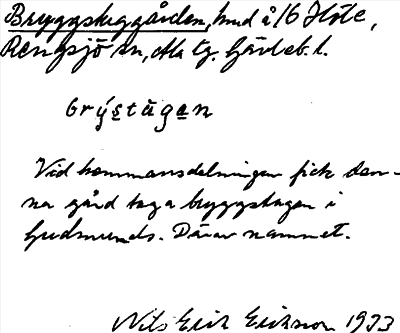 Bryggstuggården, hmd å 16 Höle,
Rengsjö sn, Ala tg. Gävleb. l.
brýstùgan
Vid hemmansdelningen fick den-
na gård taga bryggstugan i
Gudmunds. Därav namnet.
Nils Erik Eriksson 1973